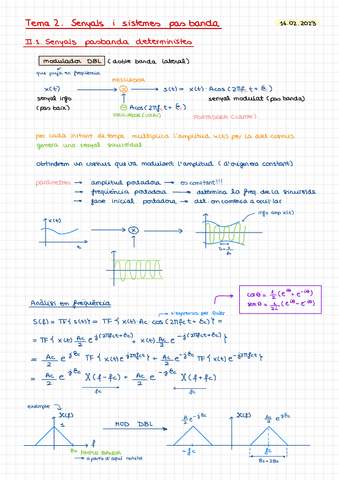 Tema 2. Senyals i sistemes pas banda
16.02.2023
II.1. Senyals passbanda deterministes
modulador DBL (doble banda lateral)
que puja en freqüència
MESCLADOR
x(t) → ⊗ → s(t) = x(t)·A cos(2πfc t + θc)
senyal info
(pas baix)
senyal modulat (pas banda)
A cos(2πfc t + θc)
OSCIL·LADOR (LOCAL)
PORTADORA (CARRIER)
per cada instant de temps multiplica l'amplitud x(t) per la del cosinus
genera una senyal sinusoidal
obtindrem un cosinus que va modulant l'amplitud (d'origen a constant)
paràmetres → amplitud portadora → és constant!!!
→ freqüència portadora → determina la freq. de la sinusoide
→ fase inicial portadora → det. on comença a oscil·lar
info amp x(t)
x(t)
t
Anàlisi en freqüència
s'expressa per Euler
cos θ = 1/2 (e^{jθ} + e^{-jθ})
sen θ = 1/2j (e^{jθ} - e^{-jθ})
S(f) = TF{s(t)} = TF{x(t)·Ac cos(2πfct + θc)} =
= TF{x(t) Ac/2 e^{j(2πfct+θc)} + x(t) Ac/2 e^{-j(2πfct+θc)}}
= Ac/2 e^{jθc} TF{x(t) e^{j2πfct}} + Ac/2 e^{-jθc} TF{x(t) e^{-j2πfct}}
= Ac/2 e^{jθc} X(f-fc) + Ac/2 e^{-jθc} X(f+fc)
fc
fc
exemple
X(f)
1
Bx
f
AMPLE BANDA
→ a partir d'aquí
MOD DBL
A/2 e^{-jθc}
-fc
X(f)
A/2 e^{jθc}
fc
Bs=2Bx